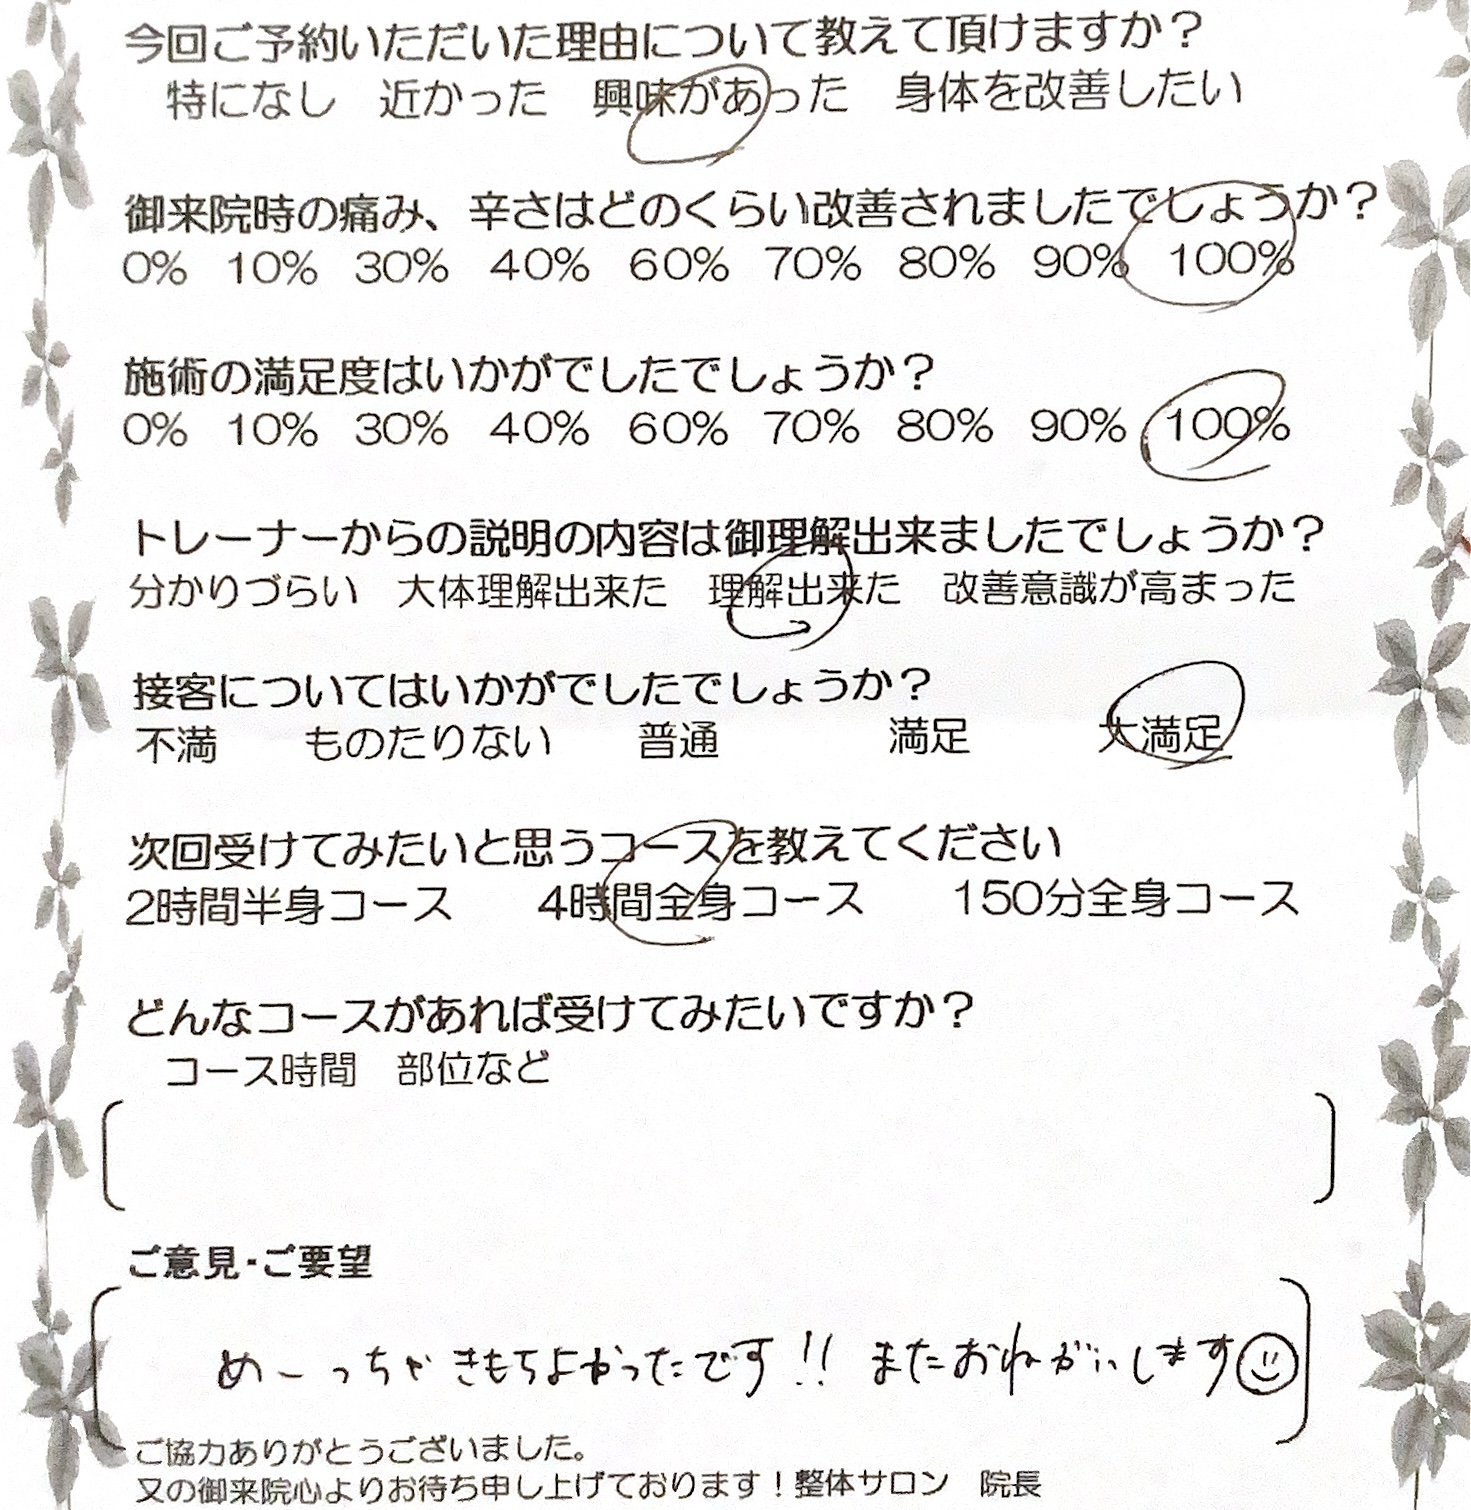 今回ご予約いただいた理由について教えて頂けますか？
特になし 近かった 興味があった 身体を改善したい
御来院時の痛み、辛さはどのくらい改善されましたでしょうか？
0% 10% 30% 40% 60% 70% 80% 90% 100%
施術の満足度はいかがでしたでしょうか？
0% 10% 30% 40% 60% 70% 80% 90% 100%
トレーナーからの説明の内容は御理解出来ましたでしょうか？
分かりづらい 大体理解出来た 理解出来た 改善意識が高まった
接客についてはいかがでしたでしょうか？
不満 ものたりない 普通 満足 大満足
次回受けてみたいと思うコースを教えてください
2時間半身コース 4時間全身コース 150分全身コース
どんなコースがあれば受けてみたいですか？
コース時間 部位など
ご意見・ご要望
めーっちゃきもちよかったです!! またおねがいします
ご協力ありがとうございました。
又の御来院心よりお待ち申し上げております！整体サロン 院長